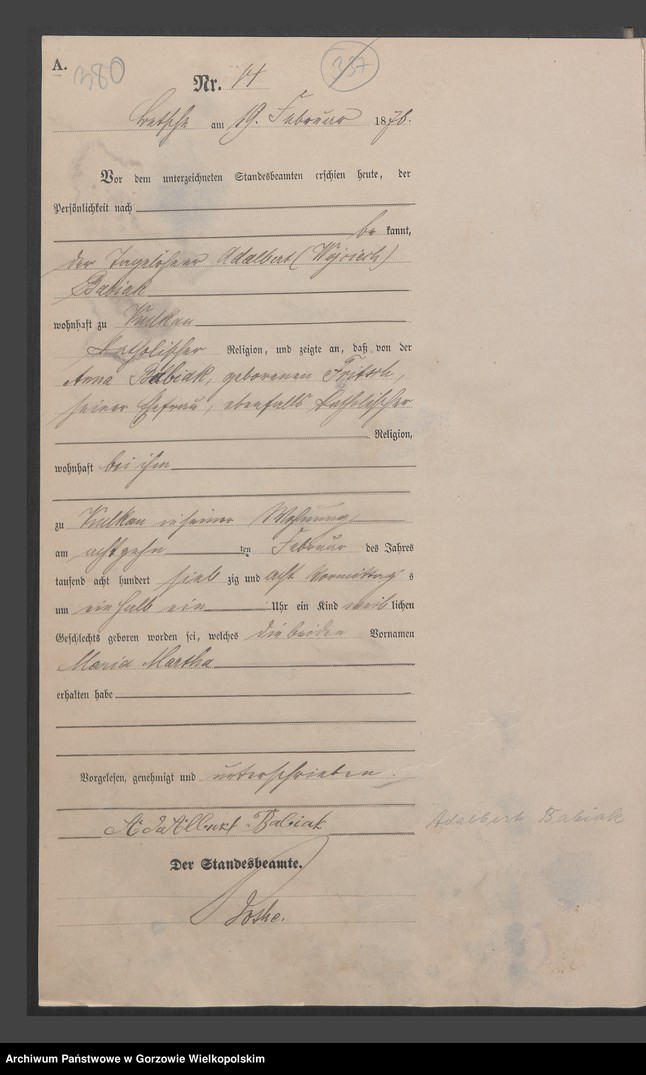 A.
380
337
Nr. 14
Betsche am 19. Februar 1878.
Vor dem unterzeichneten Standesbeamten erschien heute, der
Persönlichkeit nach
be kannt,
der Tagelöhner Adalbert (Wojciech)
Babiak
wohnhaft zu Kulkau
katholischer Religion, und zeigte an, daß von der
Anna Babiak, geborenen Fritsch,
seiner Ehefrau, ebenfalls katholischer
Religion,
wohnhaft bei ihm
zu Kulkau in seiner Wohnung
am achtzehn ten Februar des Jahres
tausend acht hundert sieb zig und acht Vormittag s
um ein halb ein Uhr ein Kind weib lichen
Geschlechts geboren worden sei, welches die beiden Vornamen
Maria Martha
erhalten habe
Vorgelesen, genehmigt und unterschrieben.
Babiak
Adalbert Babiak
Der Standesbeamte.
Archiwum Państwowe w Gorzowie Wielkopolskim